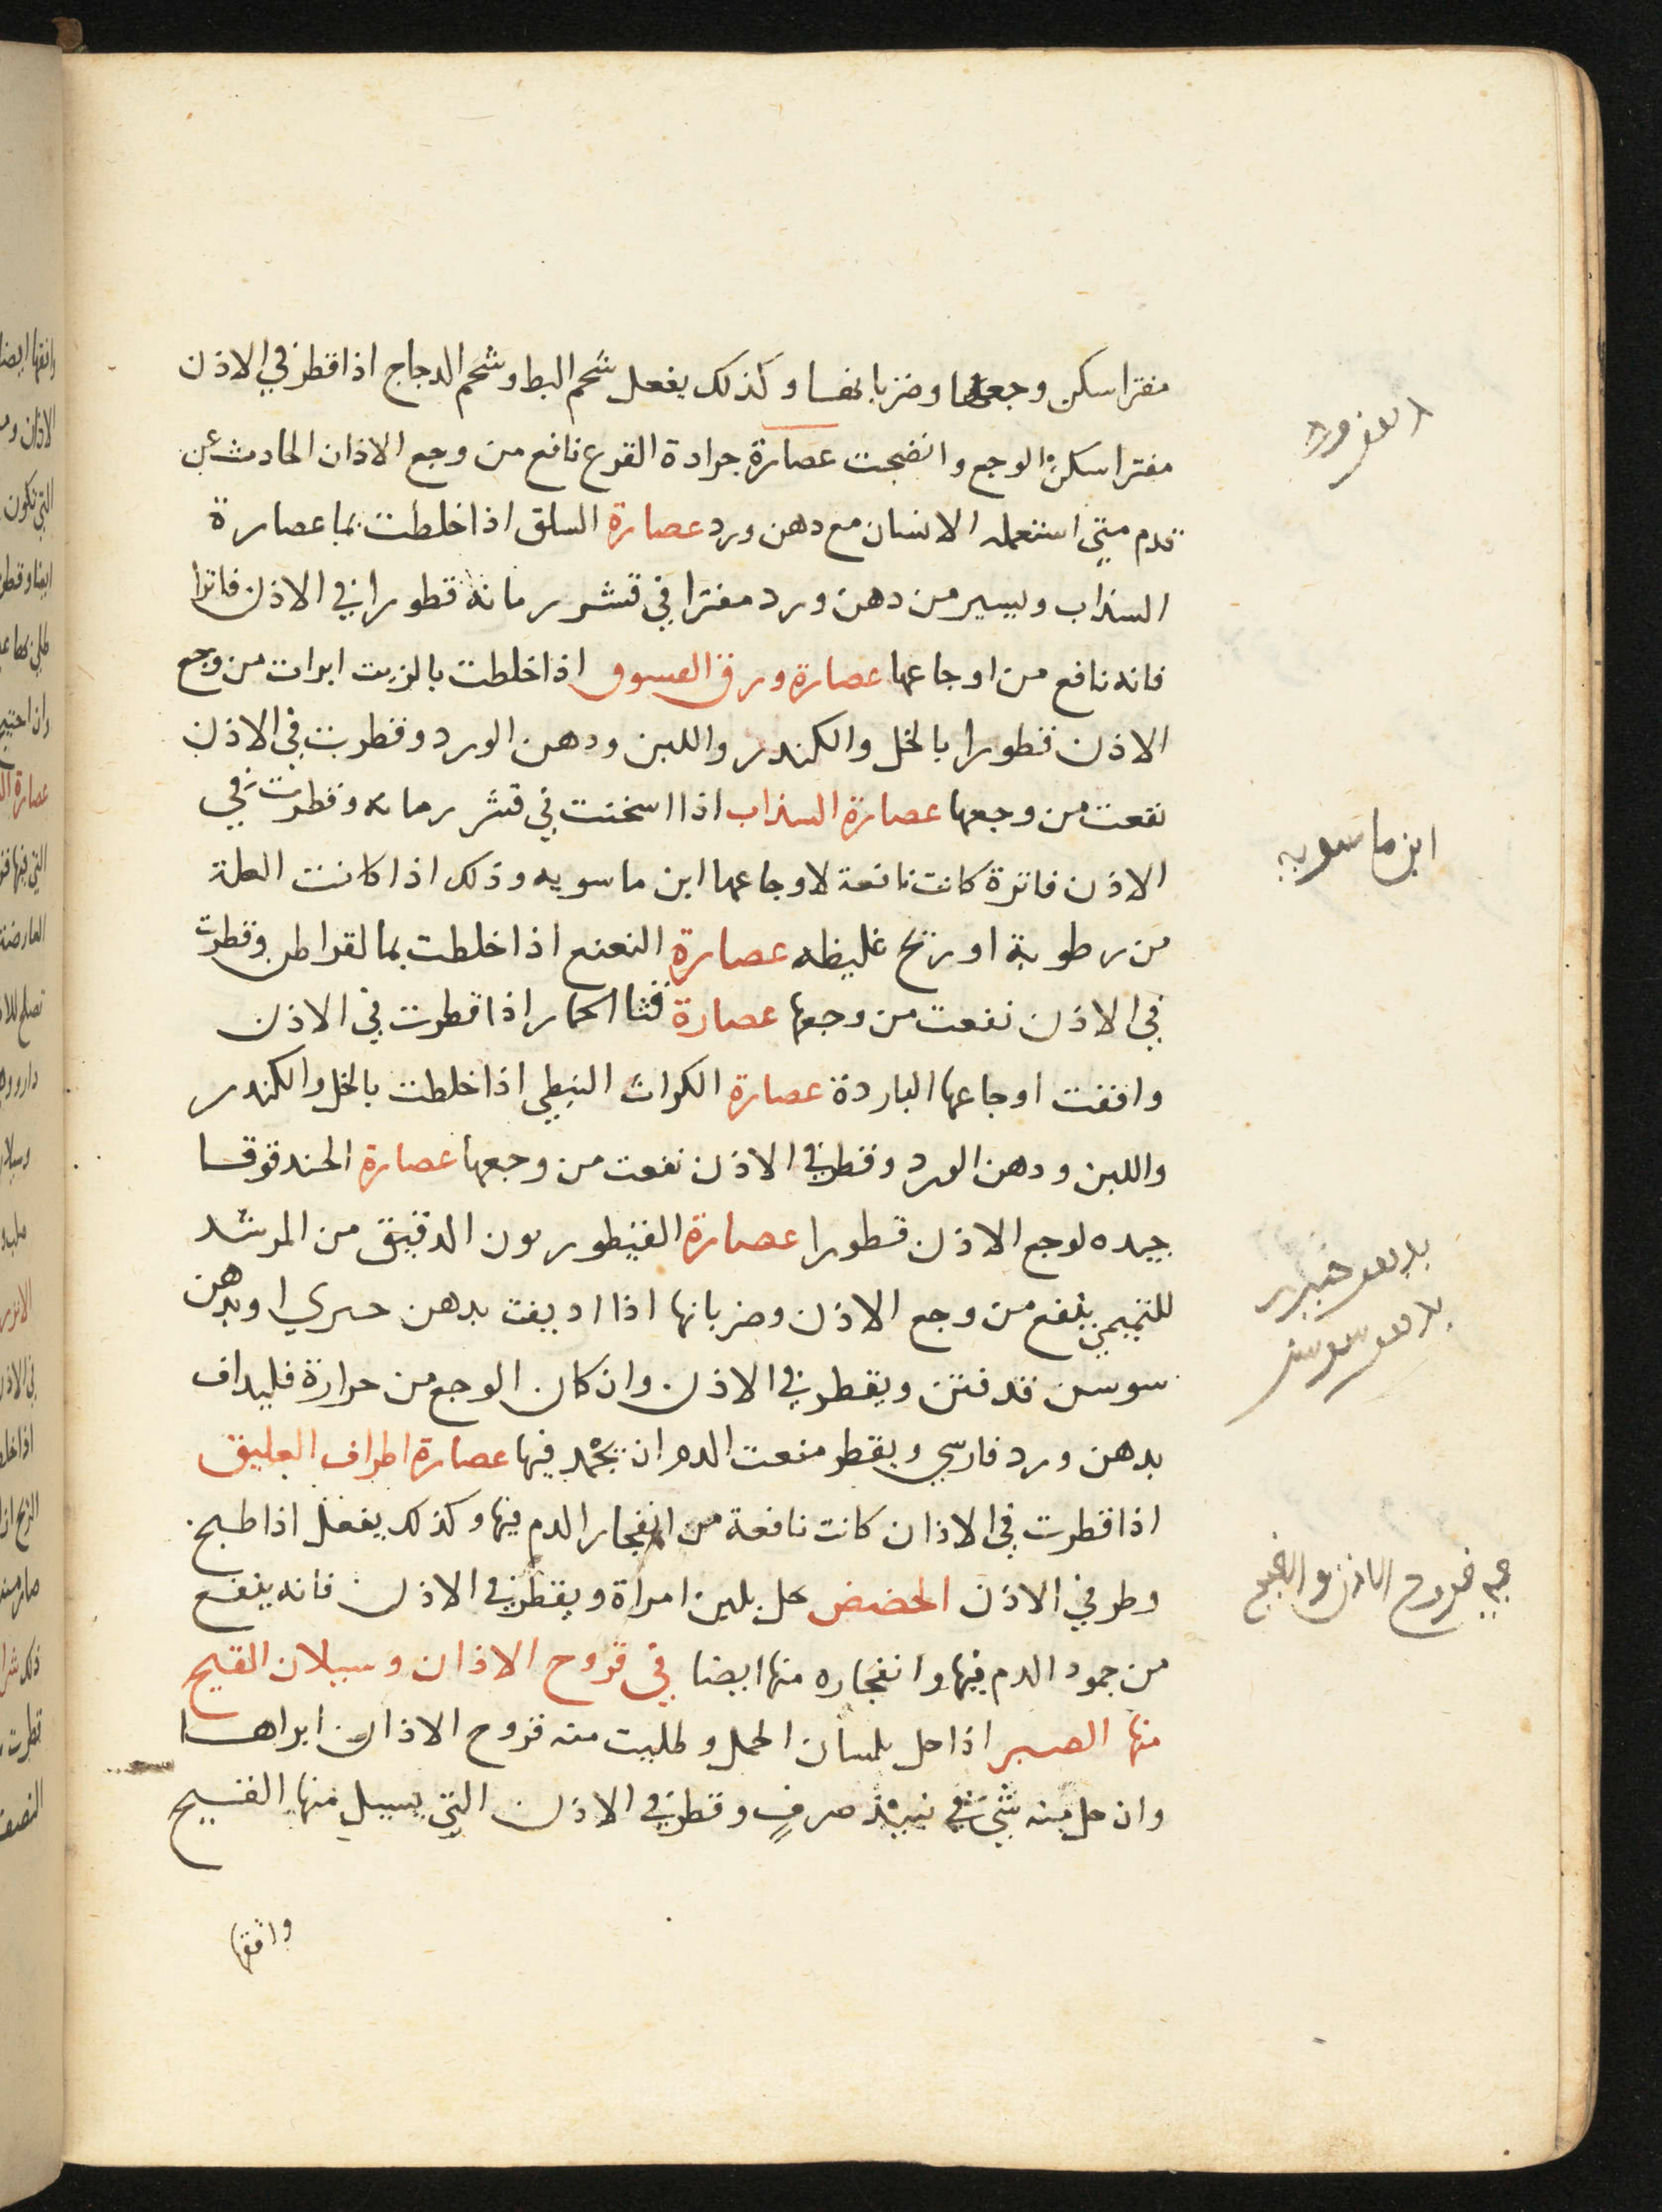 مفترا سكن وجعها وضربانها وكذلك يفعل شحم البط وشحم الدجاج اذا قطر في الاذن
مفترا سكن الوجع وانضجت عصارة جرادة القرع نافع من وجع الاذان الحادث عن
دم متى استعمله الانسان مع دهن ورد عصارة السلق اذا خلطت بما عصارة
السذاب ويسير من دهن ورد مفترا في قشر رمانة قطورا في الاذن فاترا
فانه نافع من اوجاعها عصارة ورق العسوں اذا خلطت بالزيت ابرات من وجع
الاذن قطورا بالخل والكندر واللبن ودهن الورد وقطرت في الاذن
نفعت من وجعها عصارة السذاب اذا اسخنت في قشر رمانه وقطرت في
الاذن فاترة كانت نافعة لاوجاعها ابن ماسويه وذلك اذا كانت العلة
من رطوبة او ريح غليظه عصارة النعنع اذا خلطت بما لقراطن وقطرت
في الاذن نفعت من وجعها عصارة قثا الحمار اذا قطرت في الاذن
وافقت اوجاعها الباردة عصارة الكراث النبطي اذا خلطت بالخل والكندر
واللبن ودهن الورد وقطر في الاذن نفعت من وجعها عصارة الحندقوقا
جيده لوجع الاذن قطورا عصارة القنطوريون الدقيق من المرشد
للتميمي ينفع من وجع الاذن وضربانها اذا اديفت بدهن خيري او بدهن
سوسن قد فتر ويقطر في الاذن وان كان الوجع من حرارة فليداف
بدهن ورد فارسي ويقطر منعت الدم ان يجمد فيها عصارة اطراف العليق
اذا قطرت في الاذان كانت نافعة من انفجار الدم فيها وكذلك يفعل اذا طبخ
وطر في الاذن الحضض يحل بلبن امراة ويقطر في الاذن فانه ينفع
من جمود الدم فيها وانفجاره منها ايضا في قروح الاذان وسيلان القيح
منها الصبر اذا حل بلسان الحمل وطليت منه قروح الاذان ابراها
وان حل منه شي في نبيذ صرف وقطر في الاذن التي يسيل منها القيح
وافقها
ابن ماسويه
بدهن خيري
بدهن سوسن
قروح الاذن والقيح